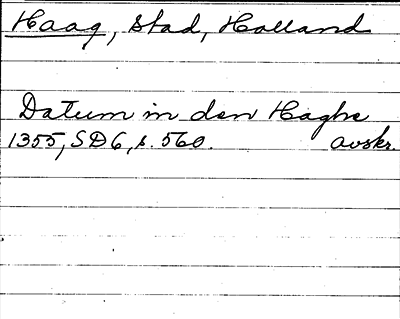 Haag, Stad, Holland
Datum in den Haghe
1355, SD6, s. 560. avskr.